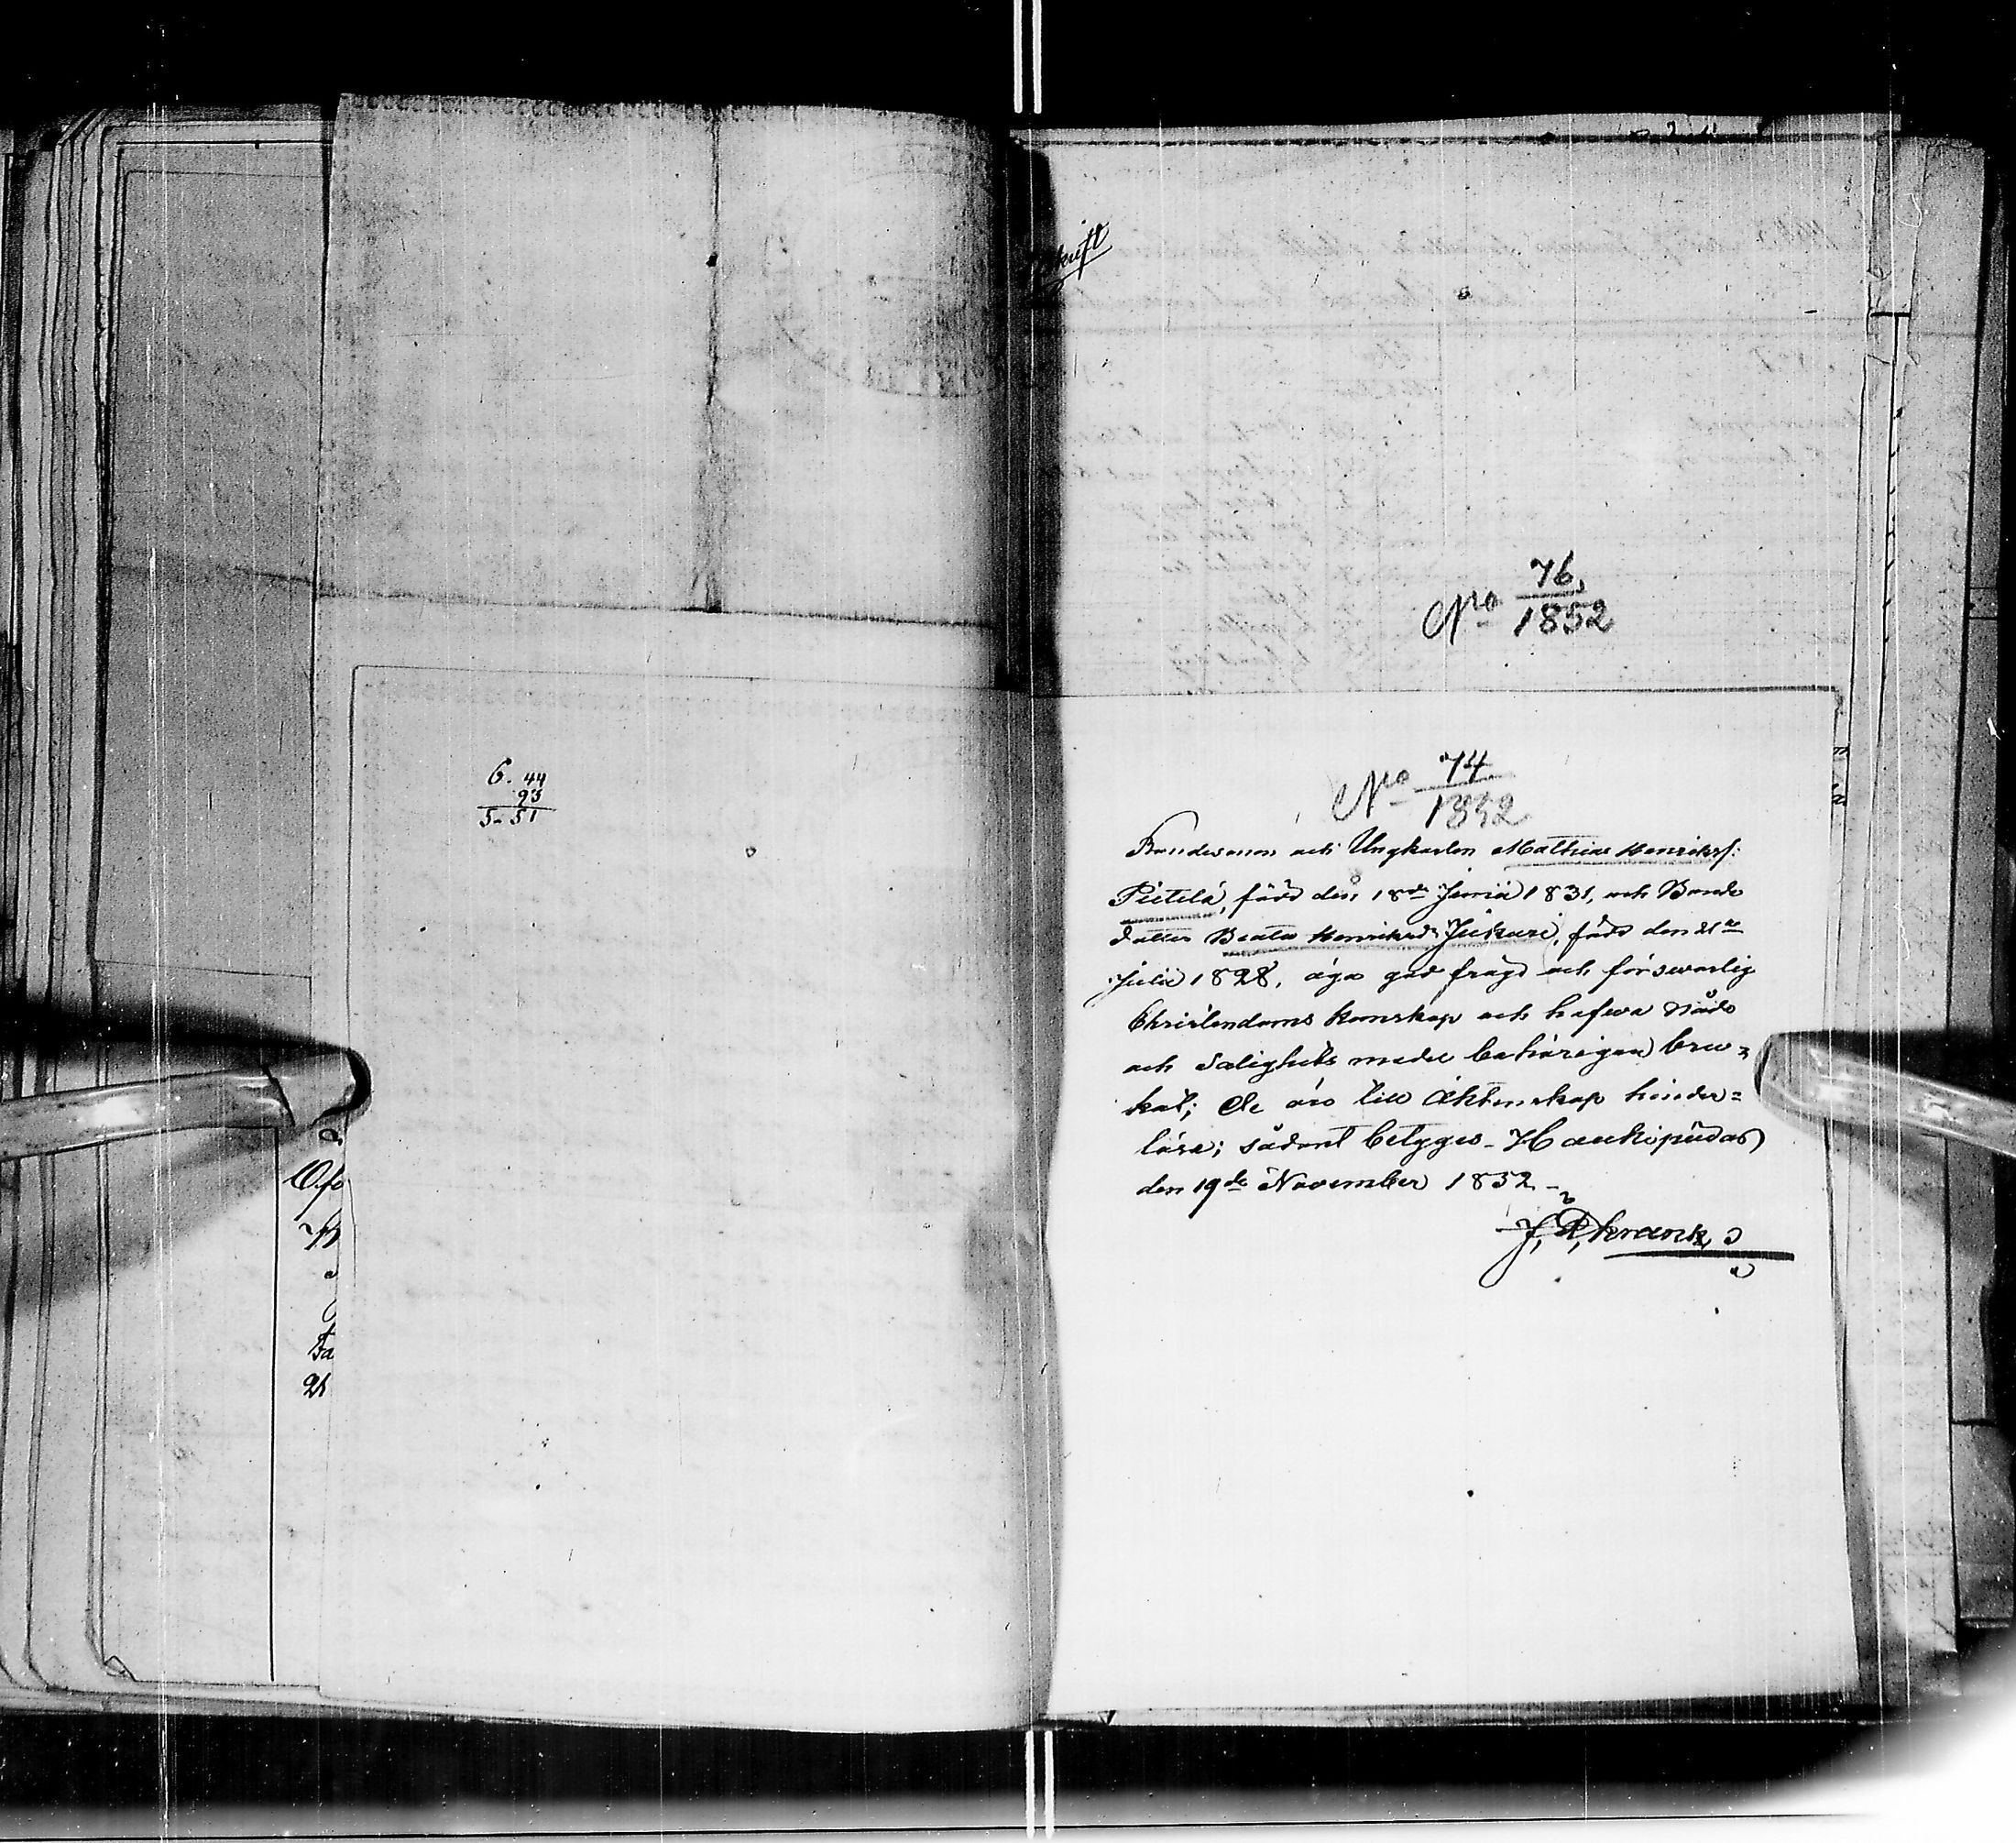 6. 44
93
5- 51
No 76
1852
No 74
1852
Bondesonen och Ungkarlen Mathias Henrikss:
Pietilä, född den 18de Junii 1831, och Bonde
dattren Beata Henriksdr Jukuri, född den 21te
Julii 1828, äga god frägd och försvarlig
Christendoms kunskap och hafwa Nåde
och Salighets medel behörigen bru=
kat; De äro till Äktenskap hinder=
lösa; sådant betygas_ Haukipudas
den 19de November 1852 _
Ofo
Ba
21